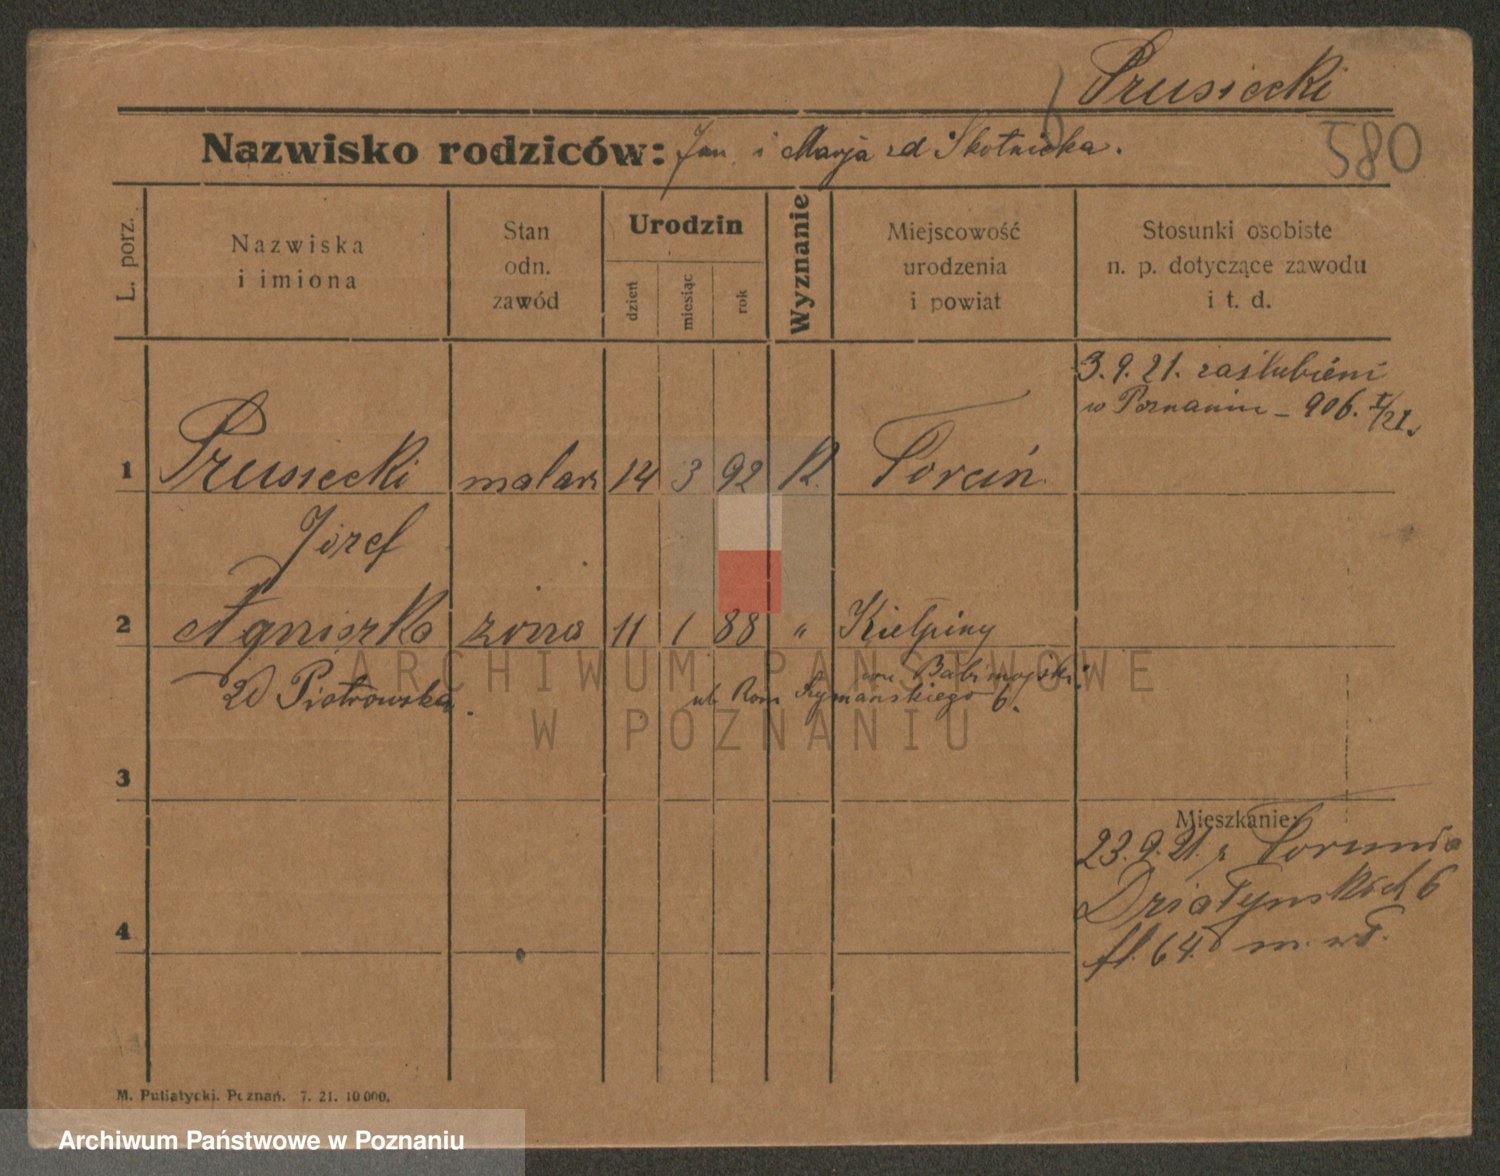 Prusiecki
580
Nazwisko rodziców: Jan i Marja zd Skotnicka.
L. porz.
Nazwiska
i imiona
Stan
odn.
zawód
Urodzin
dzień
miesiąc
rok
Wyznanie
Miejscowość
urodzenia
i powiat
Stosunki osobiste
n. p. dotyczące zawodu
i t. d.
3. 9. 21. zaślubieni
w Poznaniu – 906. I/21.
1 Prusiecki malarz 14 3 92 K.
Józef
2 Agniszka żona 11 1 88 „ Kiełpiny
zd Piotrowska.
Babimojski.
ul Rom Szymańskiego 6.
3
Mieszkanie:
23. 9. 21. z Torunia
Działyńskich 6
m. wł.
4
M. Putiatycki. Poznań. 7. 21. 10 000.
ARCHIWUM PAŃSTWOWE
W POZNANIU
Archiwum Państwowe w Poznaniu